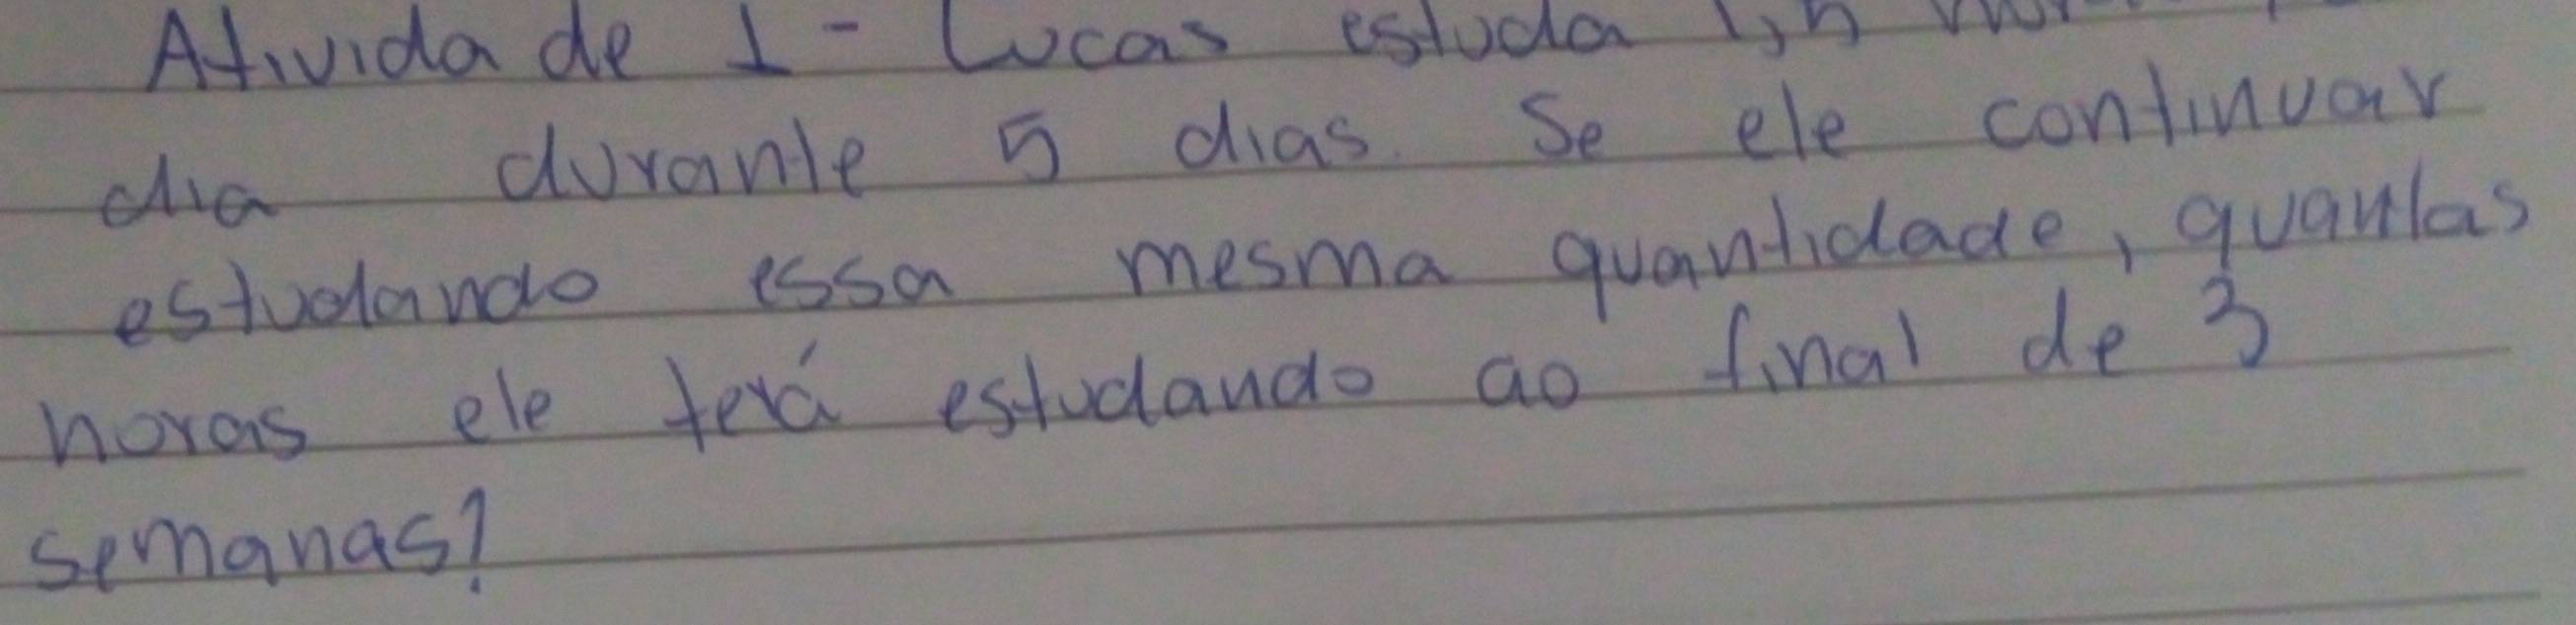 Atividade 1 - Lucas estuda 1,5
dia durante 5 dias. Se ele continuar
estudando essa mesma quantidade, quantas
horas ele terá estudando ao final de 3
semanas?